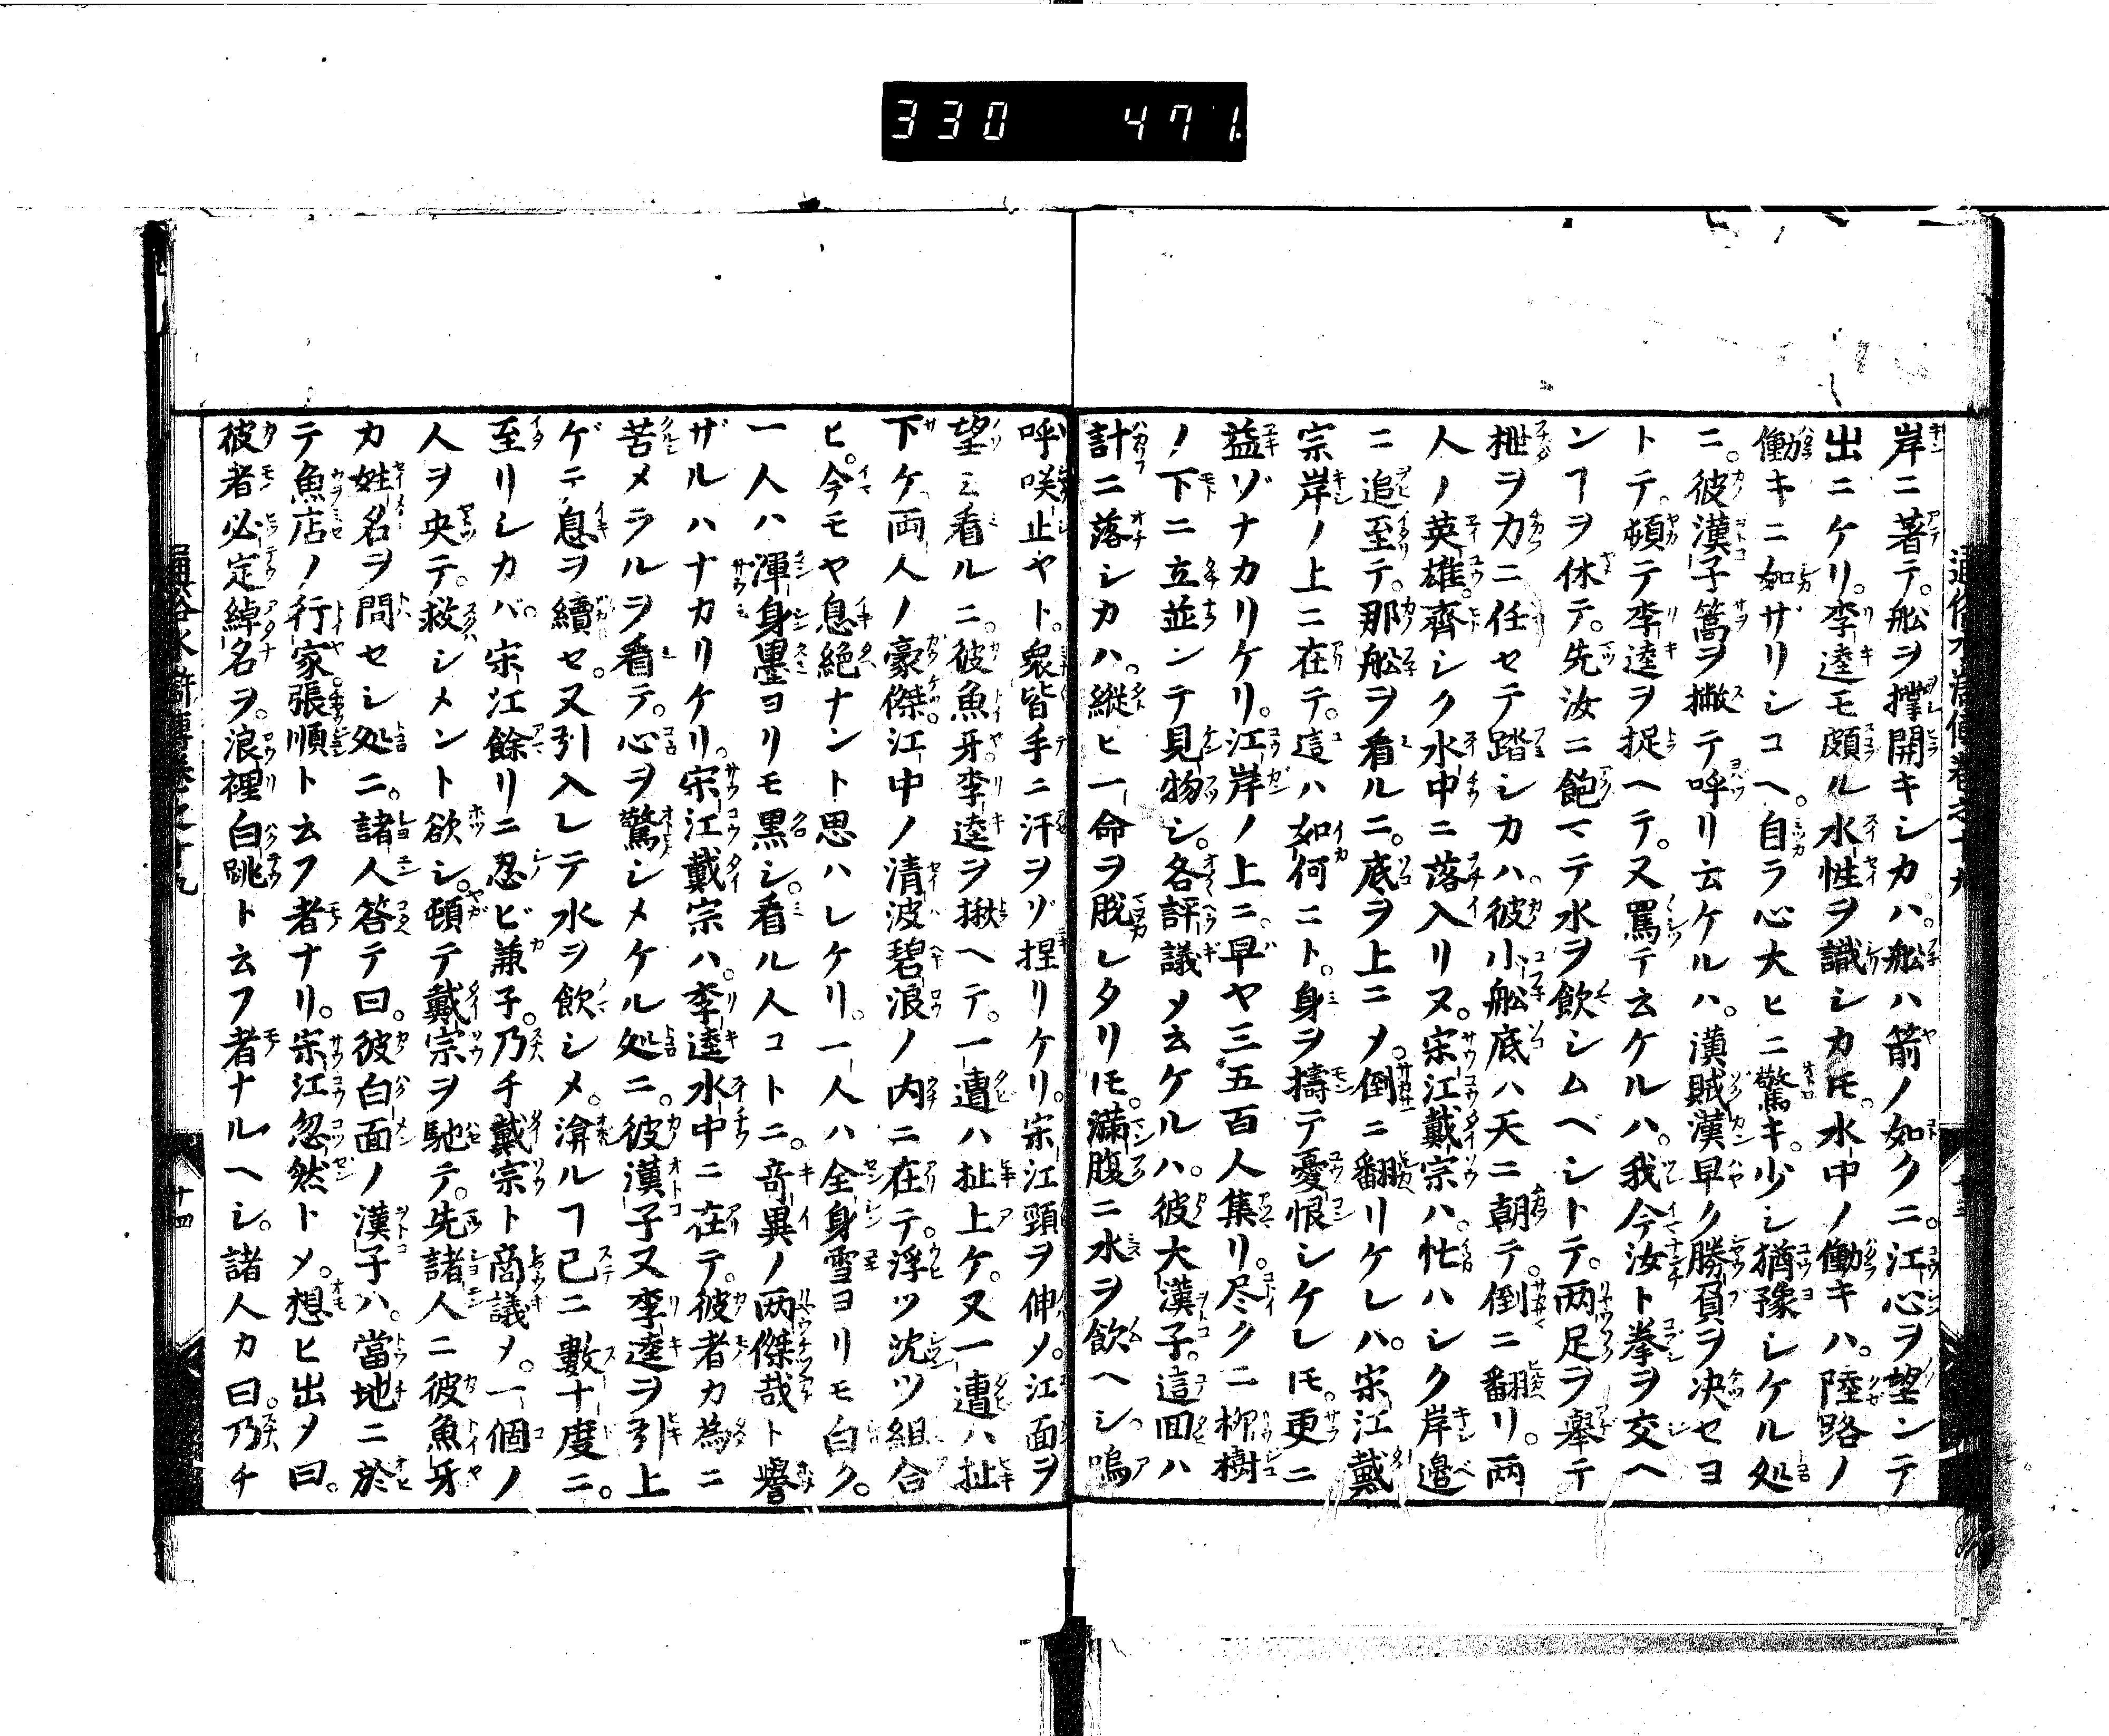 330 471
通俗水滸傳卷之十九
岸ニ著テ。舩ヲ撑開キシカハ。舩ハ箭ノ如クニ。江心ヲ望ンテ
出ニケリ。李逵モ頗ル水性ヲ識シカ𪜈。水中ノ働キハ。陸路ノ
働キニ如ザリシコヘ。自ラ心大ヒニ驚キ。少シ猶豫シケル処
ニ。彼漢子篙ヲ撇テ呼リ云ケルハ。漢賊漢早ク勝負ヲ决セヨ
トテ。頓テ李逵ヲ捉ヘテ。又罵テ云ケルハ。我今汝ト拳ヲ交ヘ
ンヿヲ休テ。先汝ニ飽マテ水ヲ飲シムベシトテ。两足ヲ擧テ
枻ヲ力ニ任セテ踏シカハ。彼小舩底ハ天ニ朝テ。倒ニ翻リ。两
人ノ英雄齊シク水中ニ落入リヌ。宋江戴宗ハ。忙ハシク岸邉
ニ追至テ。那舩ヲ看ルニ。底ヲ上ニメ。倒ニ翻リケレハ。宋江戴
宗岸ノ上ニ在テ。這ハ如何ニト。身ヲ擣テ憂恨シケレ𪜈。更ニ
益ゾナカリケリ。江岸ノ上ニ。早ヤ三五百人集リ。尽クニ柳樹
ノ下ニ立並ンテ見物シ。各評議メ云ケルハ。彼大漢子。這回ハ
計ニ落シカハ。縱ヒ一命ヲ脱レタリ𪜈。滿腹ニ水ヲ飲ヘシ嗚
呼咲止ヤト。衆皆手ニ汗ヲゾ捏リケリ。宋江頸ヲ伸メ。江面ヲ
望ミ看ルニ。彼魚牙李逵ヲ揪ヘテ。一遭ハ扯上ケ。又一遭ハ扯
下ケ。両人ノ豪傑。江中ノ清波碧浪ノ内ニ在テ。浮ツ沈ツ組合
ヒ。今モヤ息絶ナント思ハレケリ。一人ハ全身雪ヨリモ白ク。
一人ハ渾身墨ヨリモ黒シ。看ル人コトニ。竒異ノ两傑哉ト譽
ザルハナカリケリ。宋江戴宗ハ。李逵水中ニ在テ。彼者カ為ニ
苦メラルヲ看テ。心ヲ驚シメケル処ニ。彼漢子又李逵ヲ引上
ゲテ息ヲ續セ。又引入レテ水ヲ飲シメ。渰ルヿ已ニ數十度ニ。
至リシカバ。宋江餘リニ忍ビ兼子。乃チ戴宗ト商議メ。一個ノ
人ヲ央テ。救シメント欲シ。頓テ戴宗ヲ馳テ。先諸人ニ彼魚牙
カ姓名ヲ問セシ処ニ。諸人答テ曰。彼白面ノ漢子ハ。當地ニ於
テ魚店ノ行家。張順ト云フ者ナリ。宗江忽然トメ。想ヒ出メ曰。
彼者必定綽名ヲ。浪裡白跳ト云フ者ナルヘシ。諸人カ曰。乃チ
通俗水滸傳卷之十九
十四